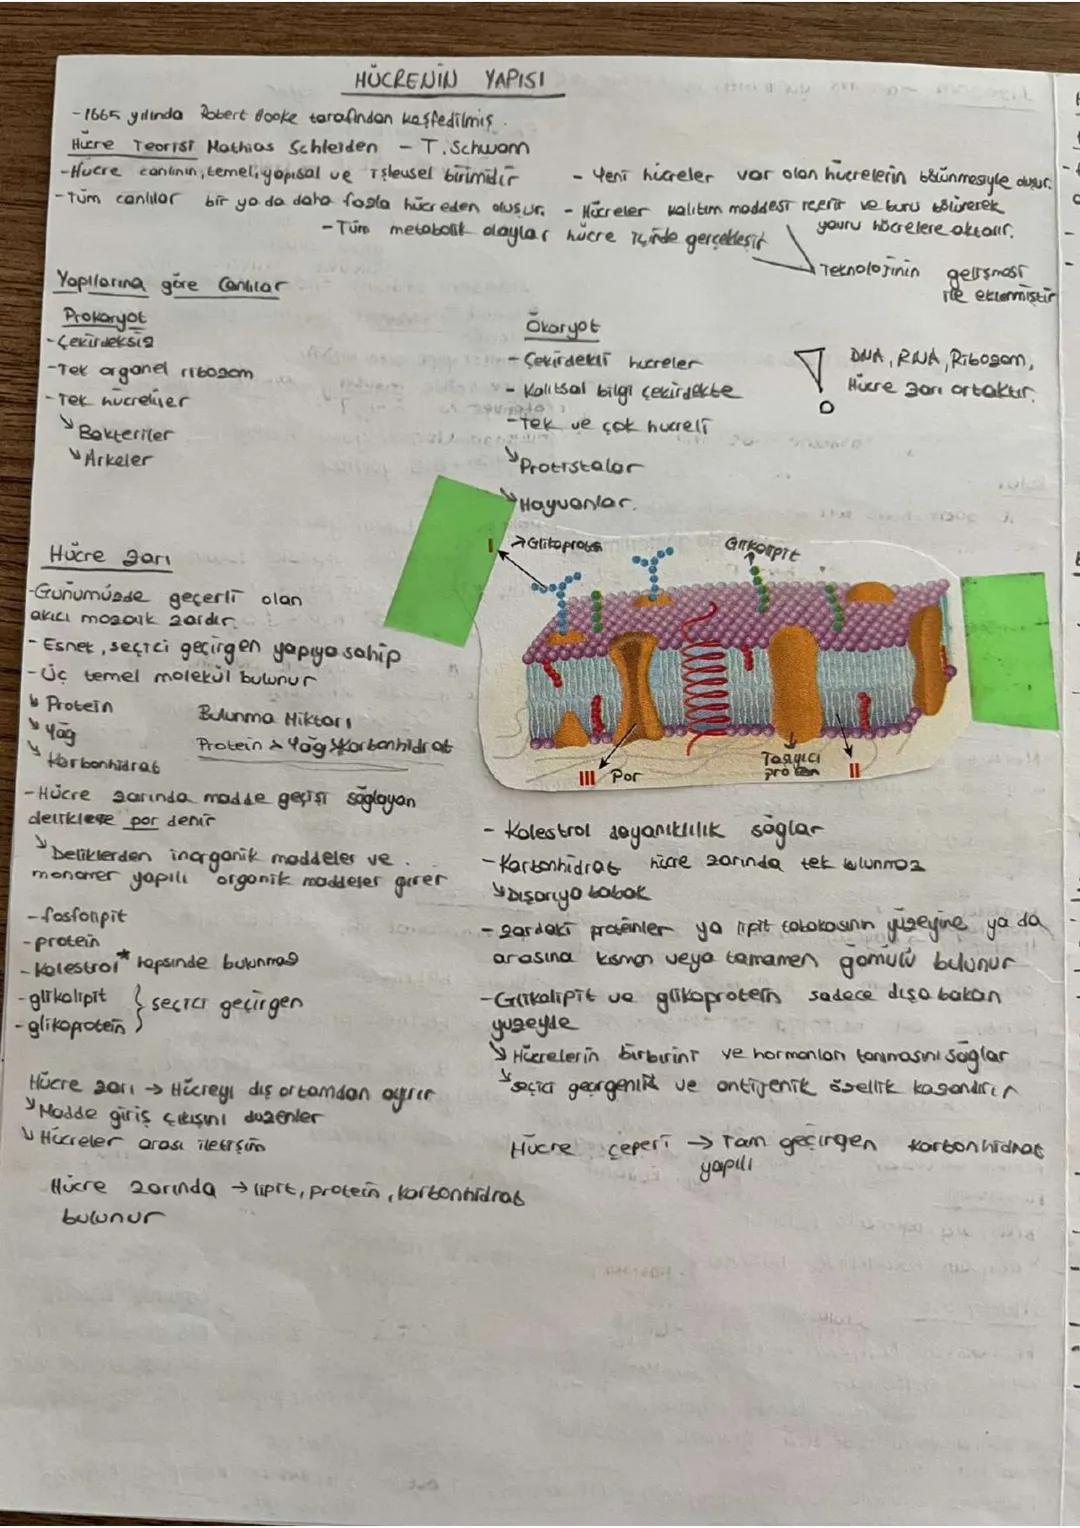 HÜCRENİN YAPISI
-1665 yılında Robert Hooke tarafından keşfedilmiş.
Hücre Teorisi Mathias Schleiden - T.Schwann
-Hücre canlının, temel, yapısal ve işlevsel birimidir
- Yeni hücreler var olan hücrelerin bölünmesiyle oluşur.
-Tüm canlılar bir ya da daha fazla hücreden oluşur.
- Hücreler kalıtım maddesi içerir ve bunu bölünerek
yavru hücrelere aktarır.
-Tüm metabolik olaylar hücre içinde gerçekleşir
Teknolojinin gelişmesi
ile eklenmiştir
Yapılarına göre Canlılar
Prokaryot
-Çekirdeksiz
-Tek organel ribozom
-Tek hücreliler
Bakteriler
Arkeler
Ökaryot
-Çekirdekli hücreler
- Kalıtsal bilgi çekirdekte
-Tek ve çok hücreli
Protistalar
Hayvanlar.
! DNA, RNA, Ribozom,
Hücre zarı ortaktır.
Hücre zarı
-Günümüzde geçerli olan
akıcı mozaik zardır.
- Esnek, seçici geçirgen yapıya sahip
-Üç temel molekül bulunur
Protein
Yağ
Karbonhidrat
Bulunma Miktarı
Protein > Yağ > Karbonhidrat
I
Glikoprotein
Glikolipit
III Por
Taşıyıcı
protein
II
-Hücre zarında madde geçişi sağlayan
deliklere por denir
Deliklerden inorganik maddeler ve
monomer yapılı organik maddeler girer
-fosfolipit
-protein
-kolestrol* hepsinde bulunmaz
-glikolipit } seçici geçirgen
-glikoprotein
Hücre zarı → Hücreyi dış ortamdan ayırır
Madde giriş çıkışını düzenler
Hücreler arası iletişim
Hücre zarında → lipit, protein, karbonhidrat
bulunur
- Kolestrol dayanıklılık sağlar
-Karbonhidrat hücre zarında tek bulunmaz
Dışarıya bakar
- zardaki proteinler ya lipit tabakasının yüzeyine ya da
arasına kısmen veya tamamen gömülü bulunur
-Glikolipit ve glikoprotein sadece dışa bakan
yüzeyde
Hücrelerin birbirini ve hormonları tanımasını sağlar
seçici geçirgenlik ve antijenik özellik kazandırır
Hücre çeperi → Tam geçirgen karbonhidrat
yapılı